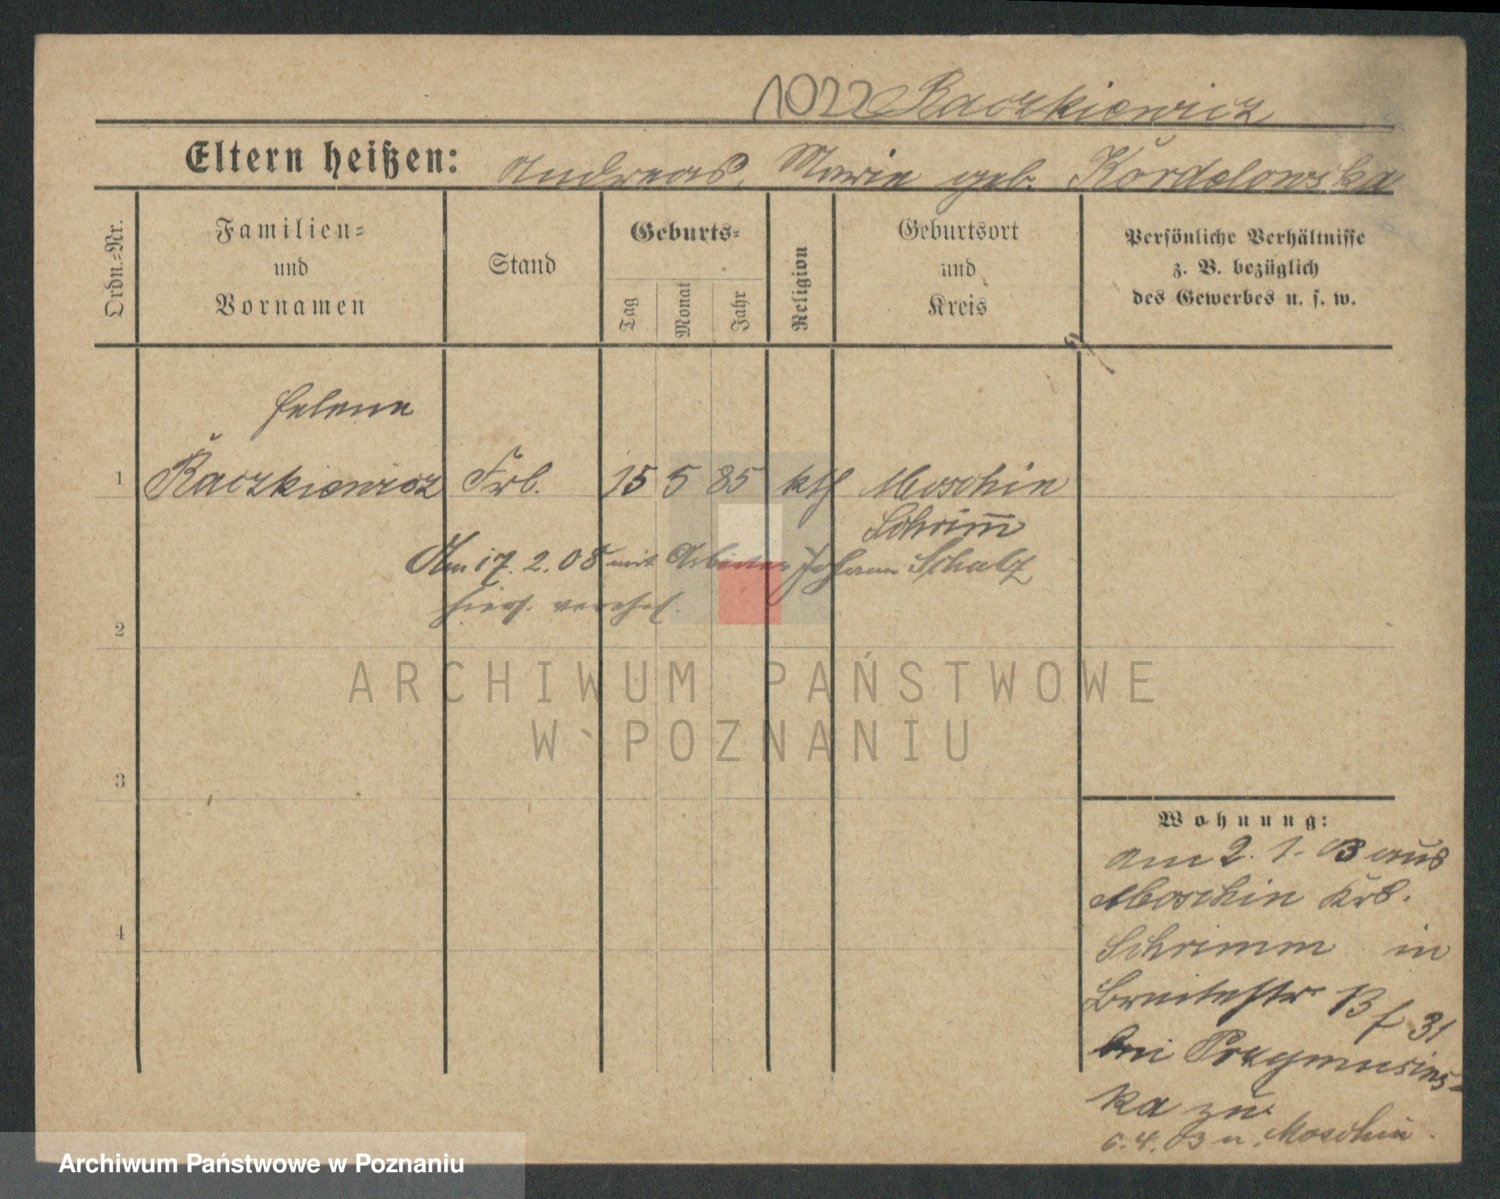 1022 Raczkiewicz
Eltern heißen: Andreas, Marie geb. Kordolowska
Ordn.-Nr.
Familien-
und
Vornamen
Stand
Geburts-
Tag
Monat
Jahr
Religion
Geburtsort
und
Kreis
Persönliche Verhältnisse
z. B. bezüglich
des Gewerbes u. s. w.
Helene
1 Raczkiewicz Frb. 15 5 85 kth Moschin
Schrim̄
Am 17. 2. 08 mit Arbeiter Johann Schalz
hiers. verehel.
2
3
4
Wohnung:
am 2. 1. 03 aus
Moschin Krs.
Schrimm in
Breitestr 13 f 31
bei Przymusins-
ka zu.
6. 4. 03 n. Moschin.
ARCHIWUM PAŃSTWOWE
W POZNANIU
Archiwum Państwowe w Poznaniu